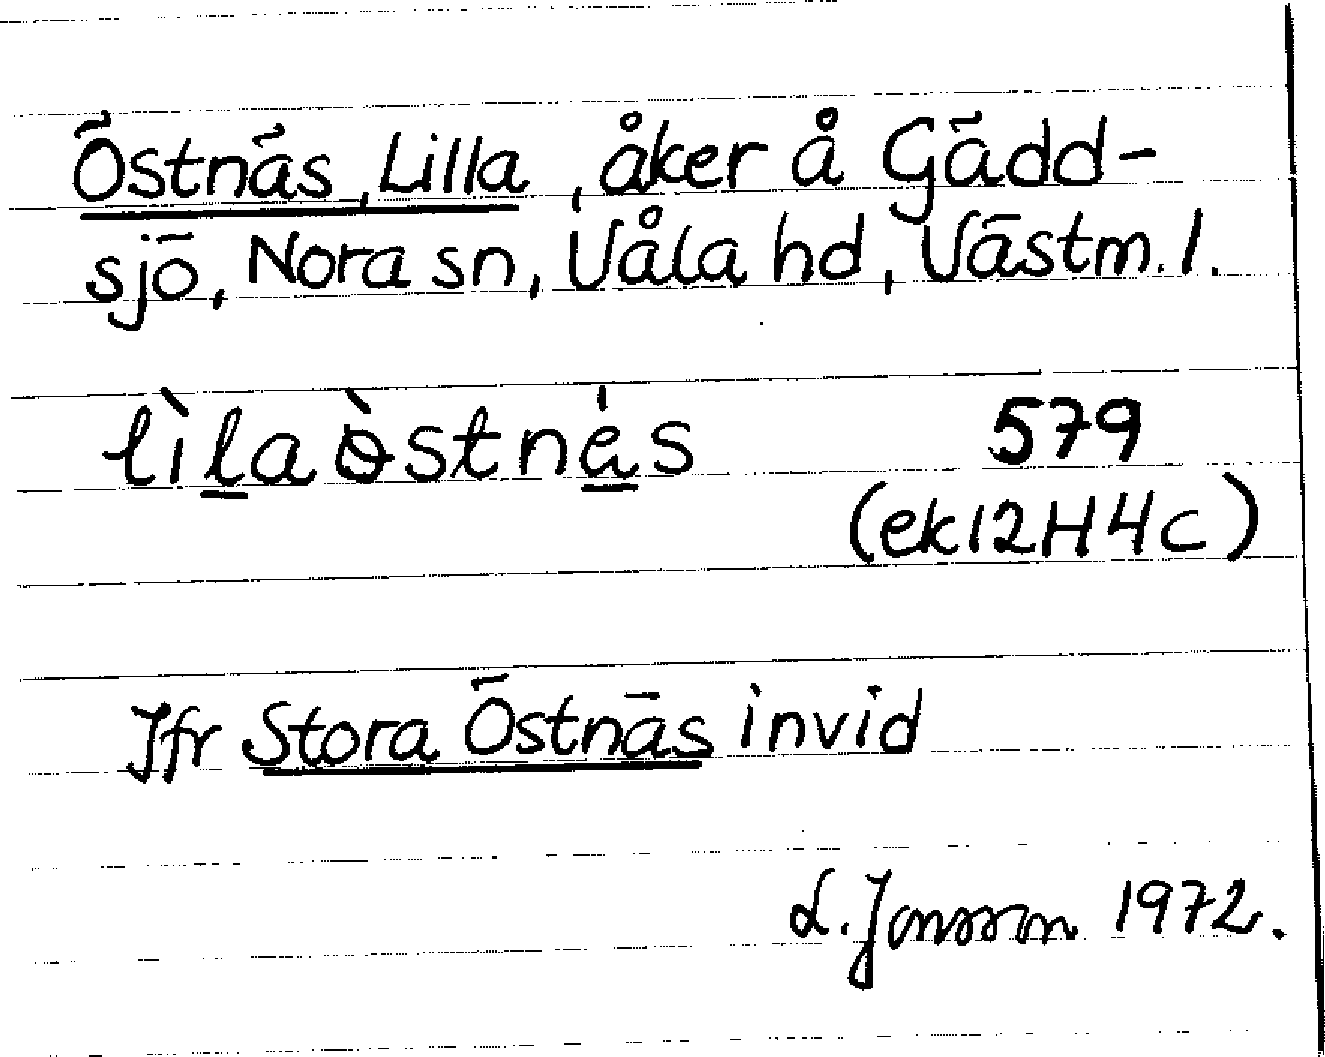 Östnäs, Lilla, åker å Gädd-
sjö, Nora sn, Våla hd, Västm. l.
lìl̲a ɵ̀stnä̲́s 579
(ek12H4c)
Jfr Stora Östnäs invid
L. Jonsson 1972.